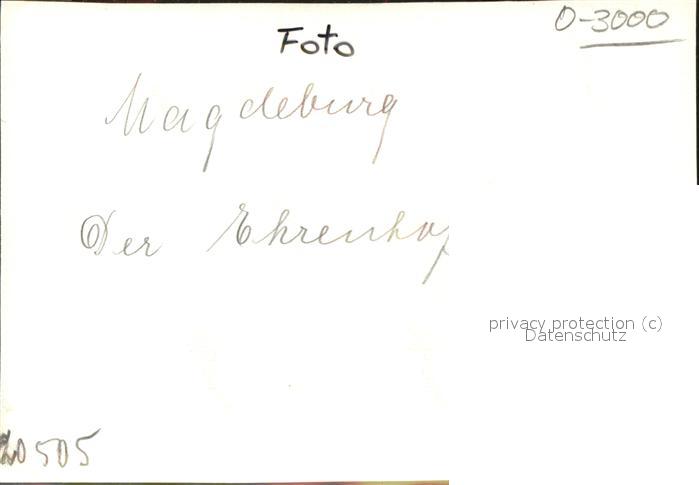 O-3000
Foto
Magdeburg
Der Ehrenhof
privacy protection (c)
Datenschutz
20505